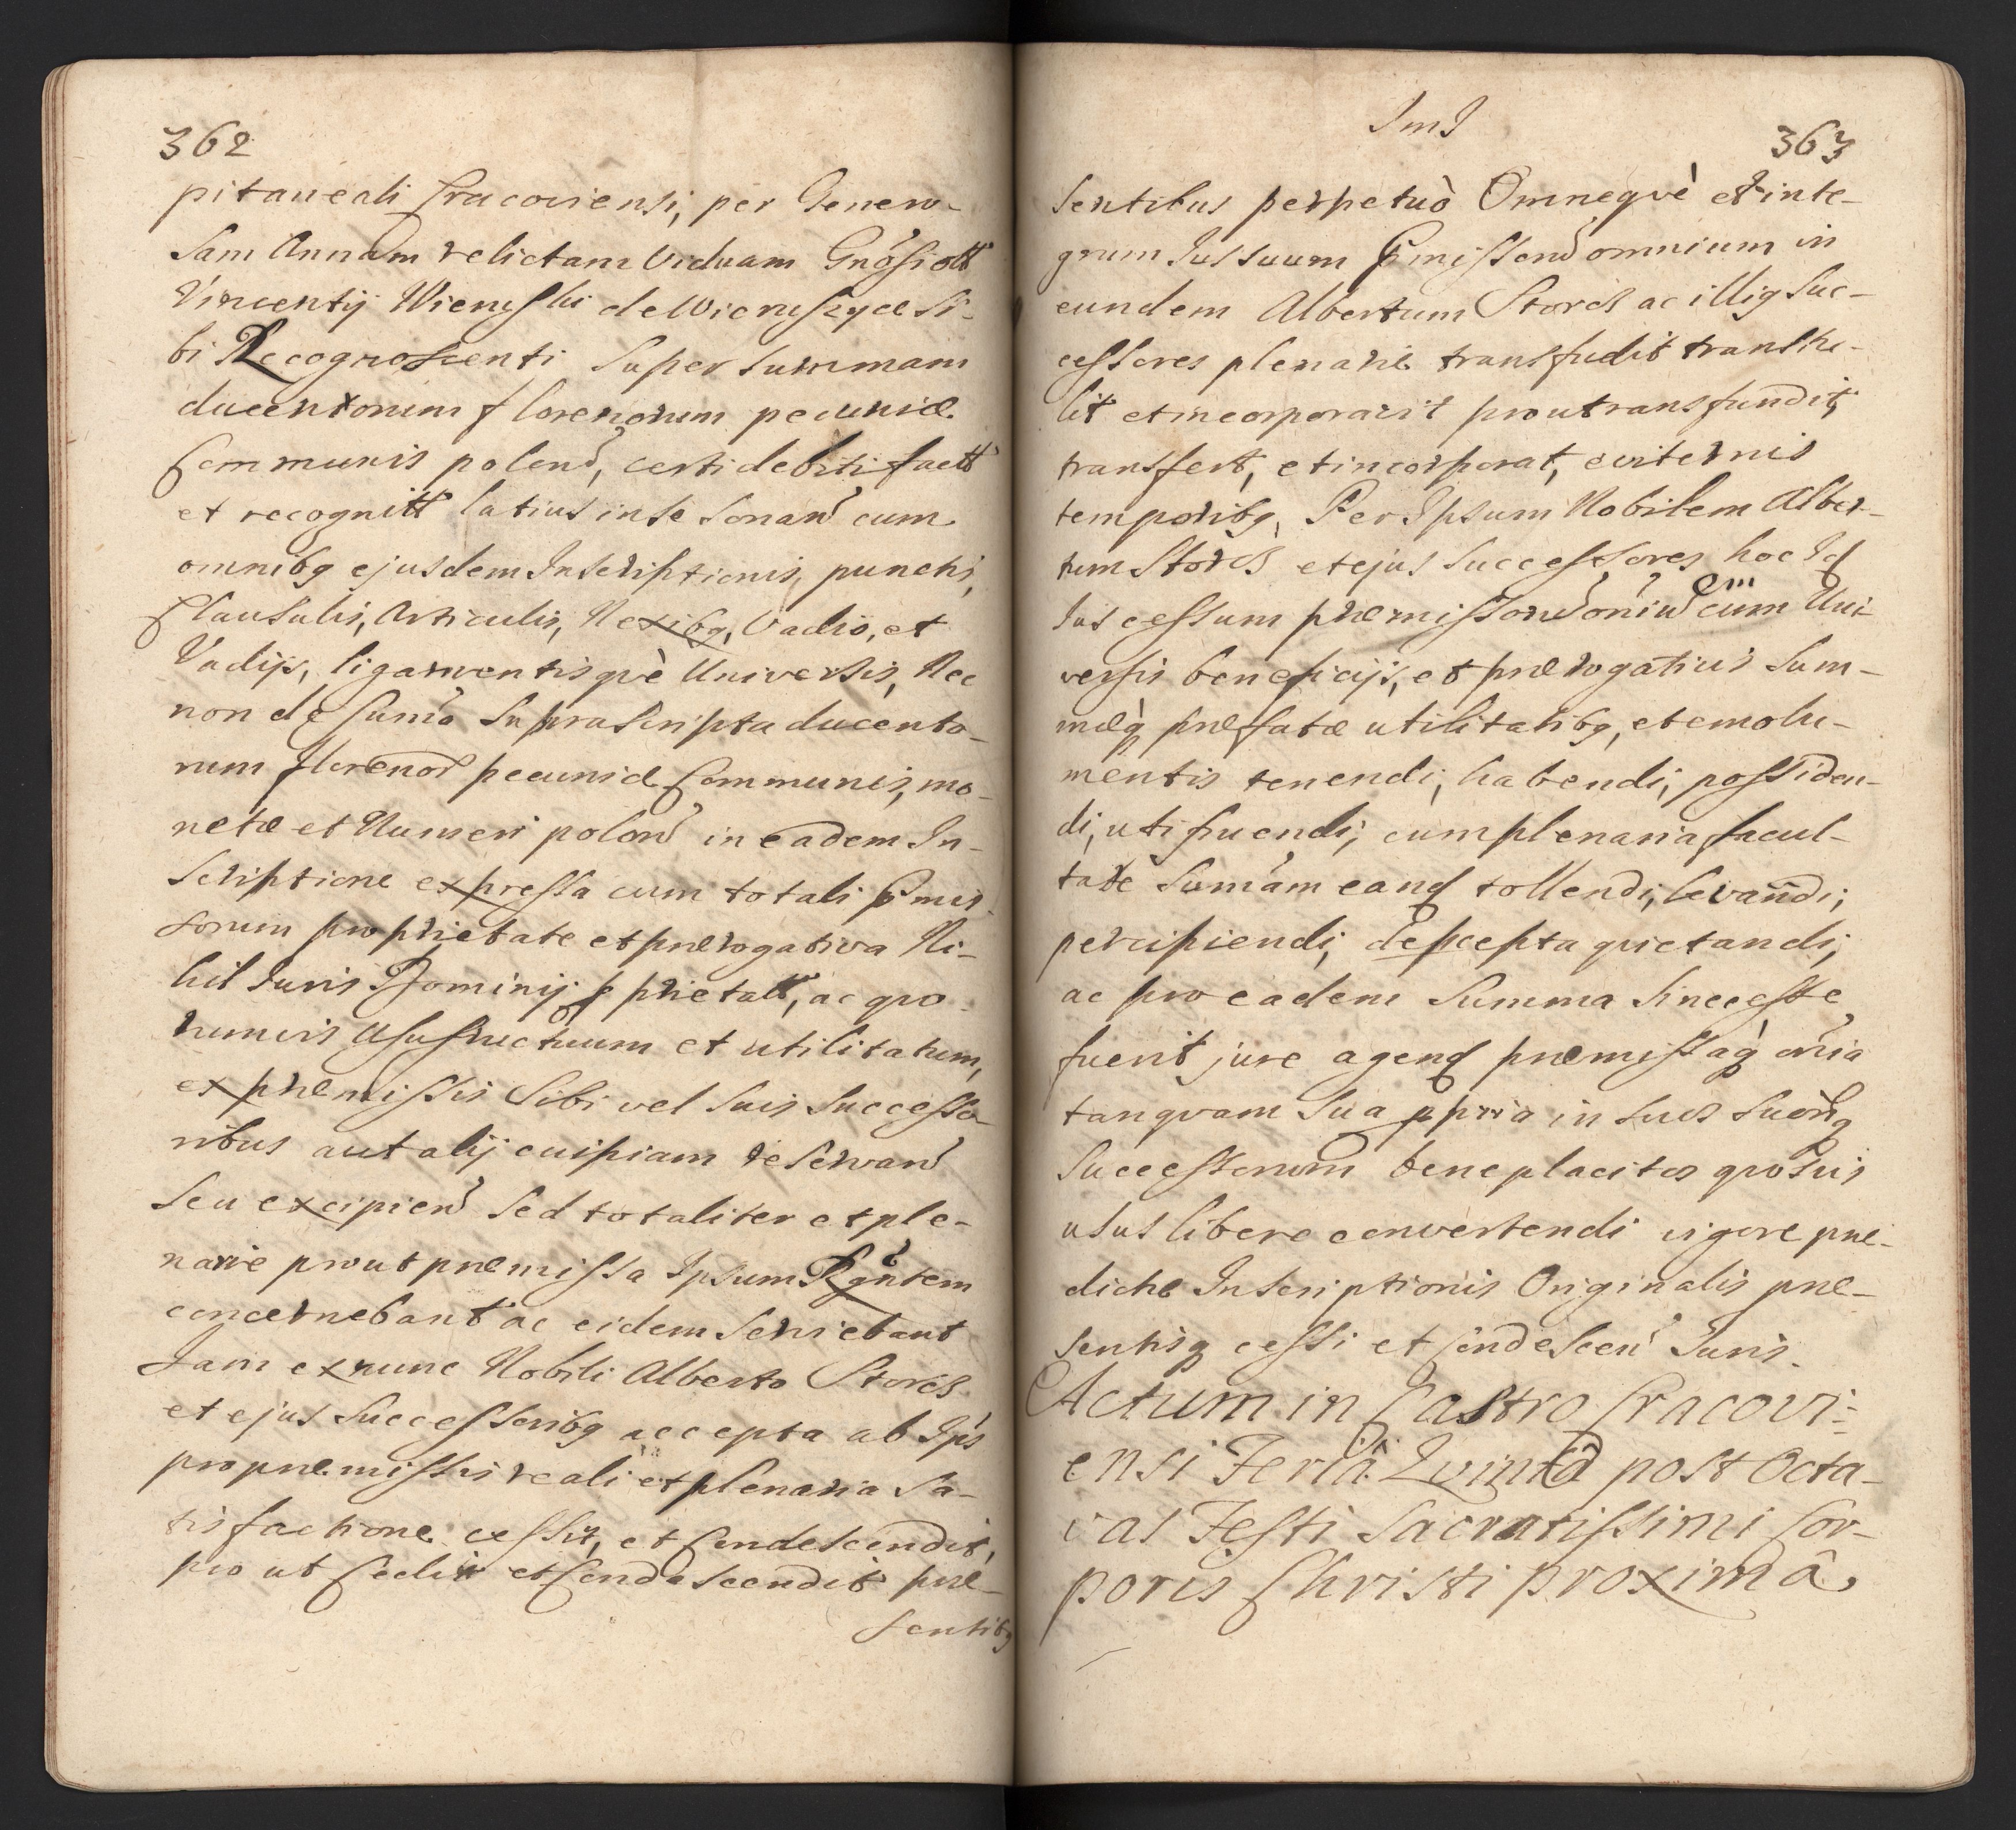 362
pitaneali Cracoviensi, per Genero-
sam Annam relictam Viduam Gnōsi olt
Vincentij Wierusski de Wieruszyce Si-
bi Recognoscenti super summam
ducentorum florenorum pecuniæ
Communis polonᵈ, certi debiti factt
et recognitt latius in se sonanᵈ cum
omnibq ejusdem Inscriptionis, punctis,
Clausulis, Articulis, Nexibq, Vadio, et
Vadijs, ligamentisqvè Universis, Nec
non de sum̄a suprascripta ducento-
rum florenorᵈ pecuniæ Communis, mo-
netæ et Numeri polonᵈ in eadem In-
scriptione expressa cum totali p̄mis
sorum proprietate et prærogativa Ni-
hil Juris Dominij pprietatt, ac qvo
rumvis Usufructuum et utilitatum,
ex præmissis Sibi vel suis Successo-
ribus aut alij cuipiam reservanᵈ
Seu excipienᵈ Sed totaliter et ple-
narie prout præmissa Ipsum Rgn̄tem
concernebant ac eidem serviebant
Jam ex nunc Nobili Alberto Storch
et ejus Successoribq accepta ab Ips
pro præmissis reali et plenaria Sa-
tisfactione cessit, et Condescendit,
pro ut Cedit et Condescendit præ-
sentibq
JmJ
363
sentibus perpetuò Omneqvè et inte-
grum Jus suum p̄missorᵈ omnium in
eundem Albertum Storch ac illiq Suc-
cessores plenarie transfudit transtu-
lit et incorporavit prout transfundit,
transfert, et incorporat, eviternis
temporibq. Per Ipsum Nobilem Alber-
tum Storch et ejus Successores hoc Id
Jus cessum præmissorᵈ om̄iuᵈ cum Uni
versis beneficijs, et prærogativis Sum-
mæq præfatæ utilitatibq, et emolu-
mentis tenendi, habendi, possiden-
di, utifruendi, cum plenaria facul-
tate Sum̄am eand tollendi, levan̄di,
percipiendi, de pcepta qvietandi,
ac pro eadem Summa Si necesse
fuerit jure agend præmissaq om̄ia
tanqvam sua ppria in suos suorq
Successorum beneplacitos qvosvis
usus libere convertendi vigore præ-
dictæ Inscriptionis Originalis præ-
sentisq cessi et Condescen Juris.
Actum in Castro Cracovi-
ensi Feriâ Qvintâ post Octa-
vas Festi Sacratissimi Cor-
poris Christi proximâ